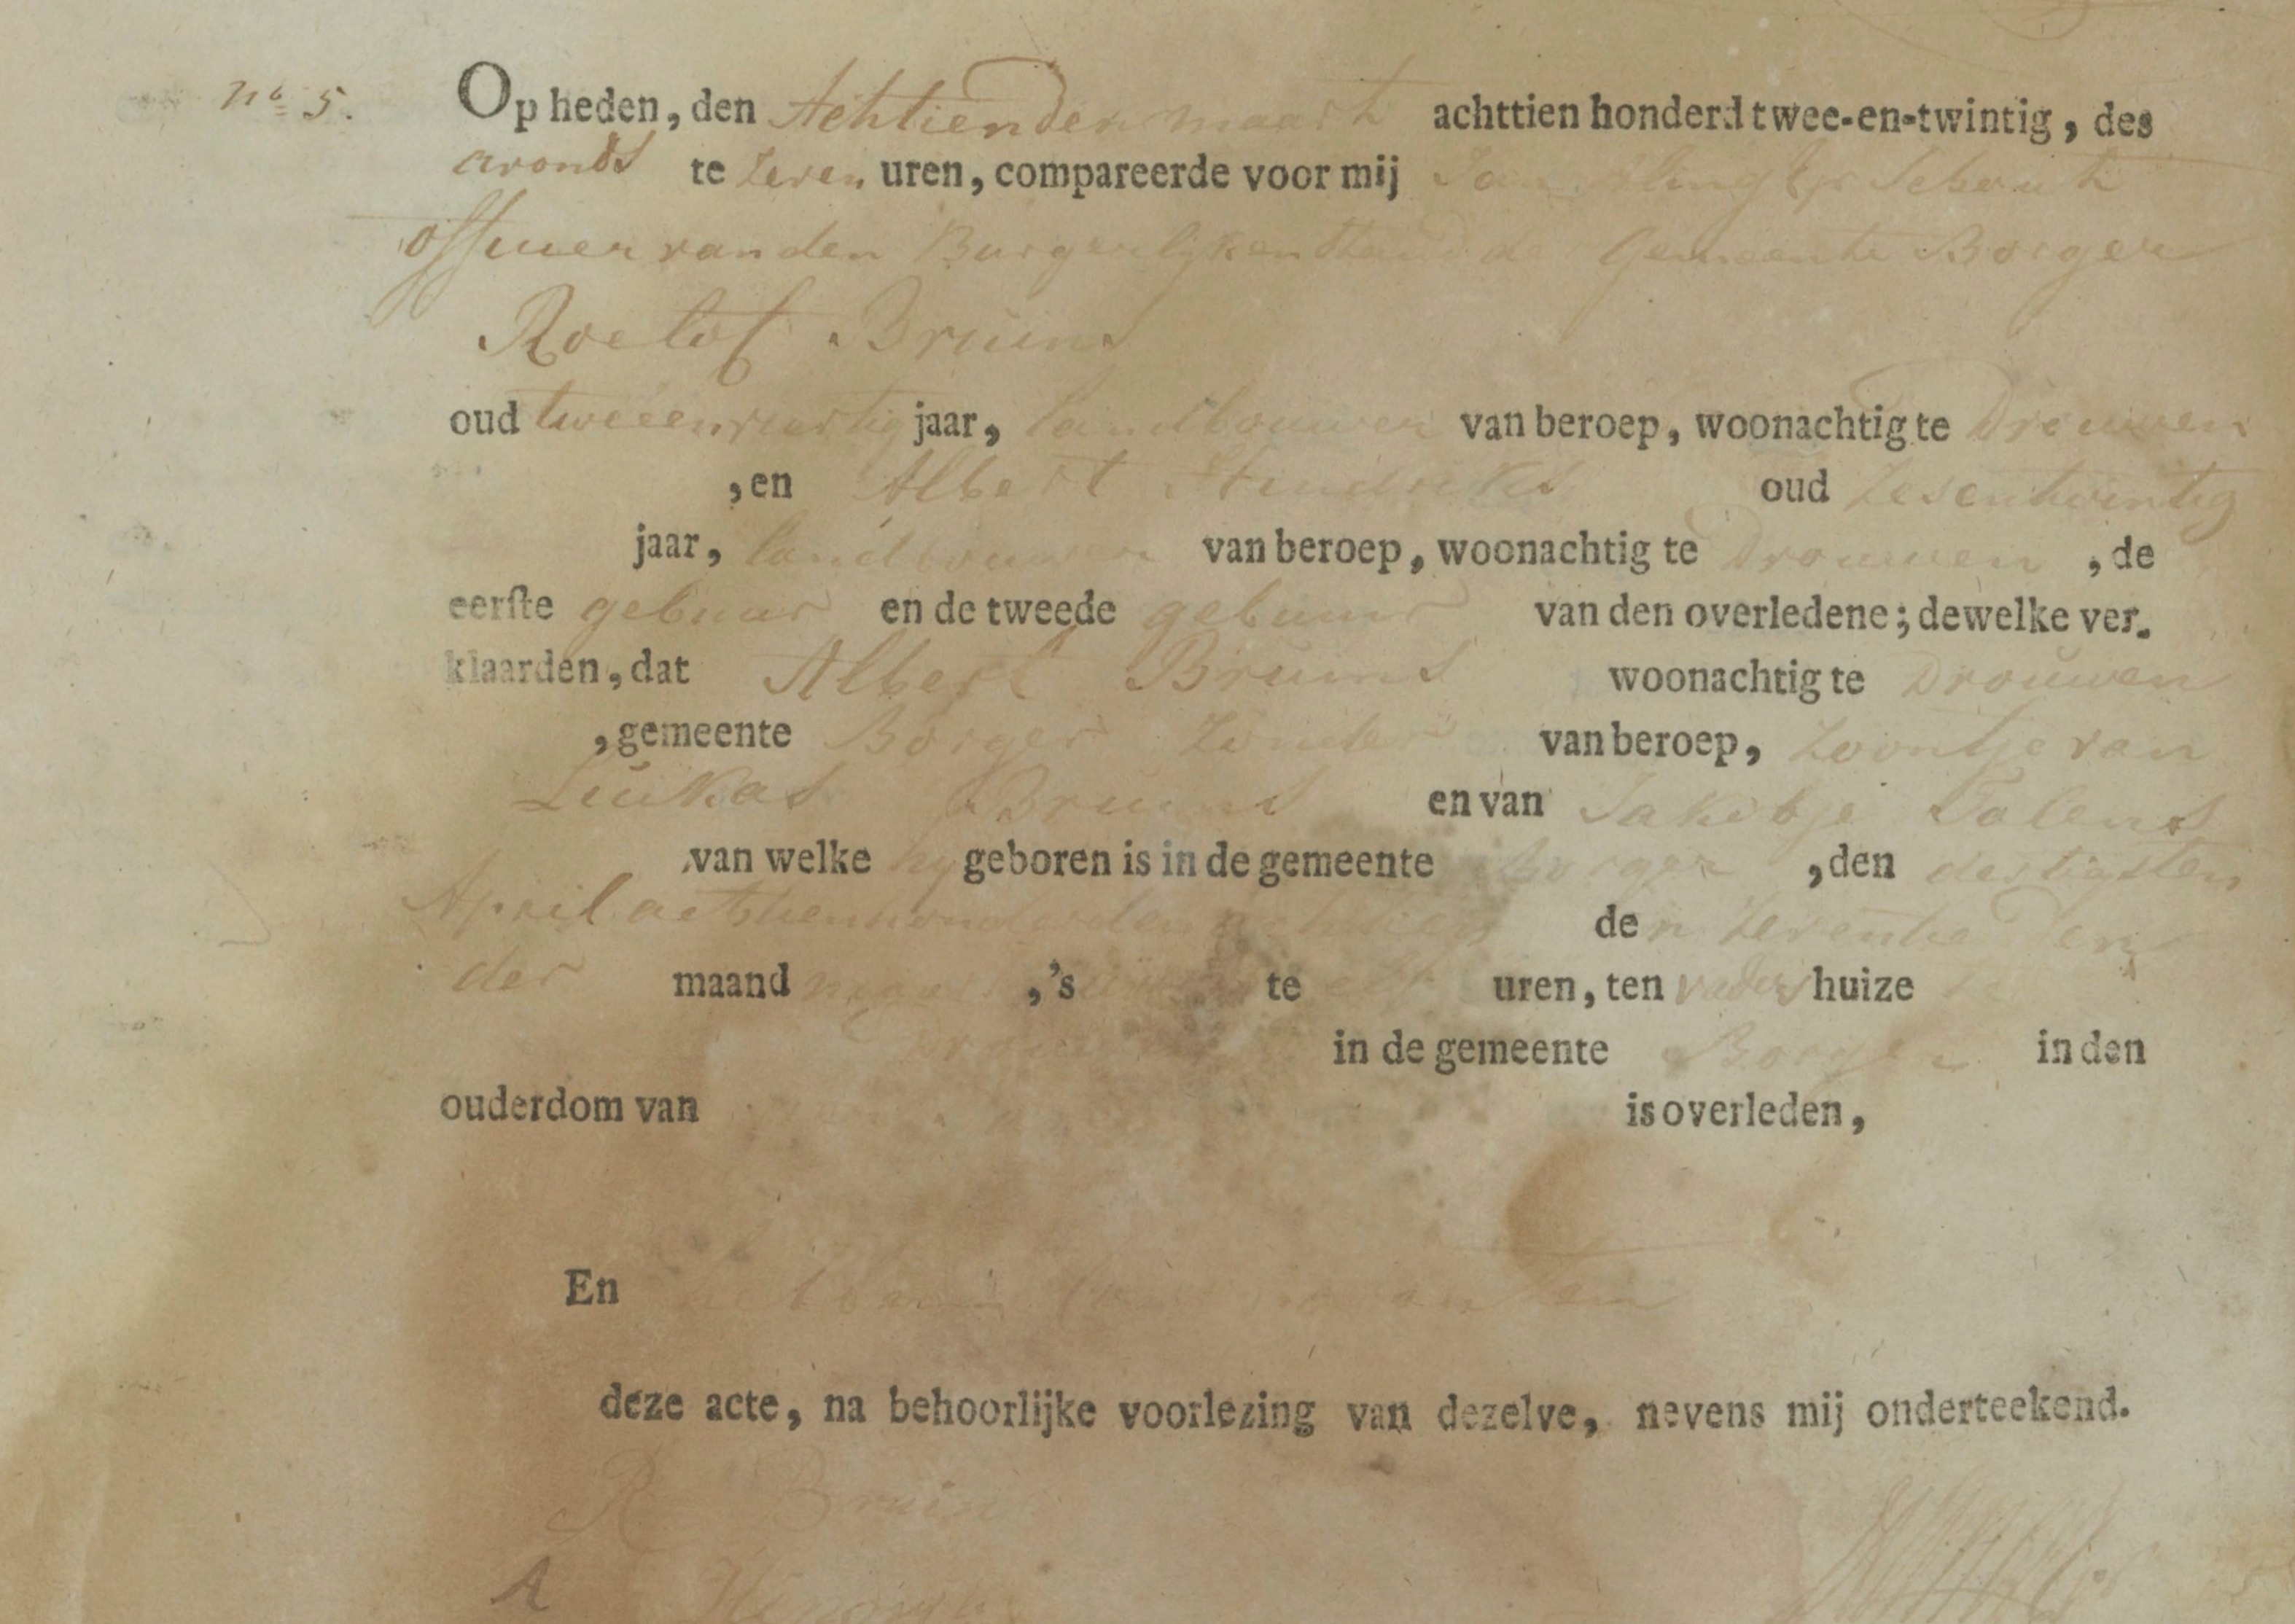 No 5. Op heden, den Achtienden maart achttien honderd twee-en-twintig, des
avonds te Zeven uren, compareerde voor mij Jan Schout
officier van den Burgerlijken Stand de Gemeente Borger
Roelof Bruins
oud tweeenveertig jaar, landbouwer van beroep, woonachtig te Drouwen
, en Albert Hindriks oud Zesentwintig
jaar, landbouwer van beroep, woonachtig te Drouwen , de
eerſte gebuur en de tweede gebuur van den overledene; dewelke ver-
klaarden, dat Albert Bruins woonachtig te Drouwen
, gemeente Borger Zonder van beroep, Zoontje van
Luikas Bruins en van Jakobje Talens
van welke hy geboren is in de gemeente Borger , den dertigsten
April achtienhonderden den Zeventienden
der maand maart , 's te uren, ten vaders huize
in de gemeente Borger in den
ouderdom van is overleden,
En
deze acte, na behoorlijke voorlezing van dezelve, nevens mij onderteekend.
R Bruins
A